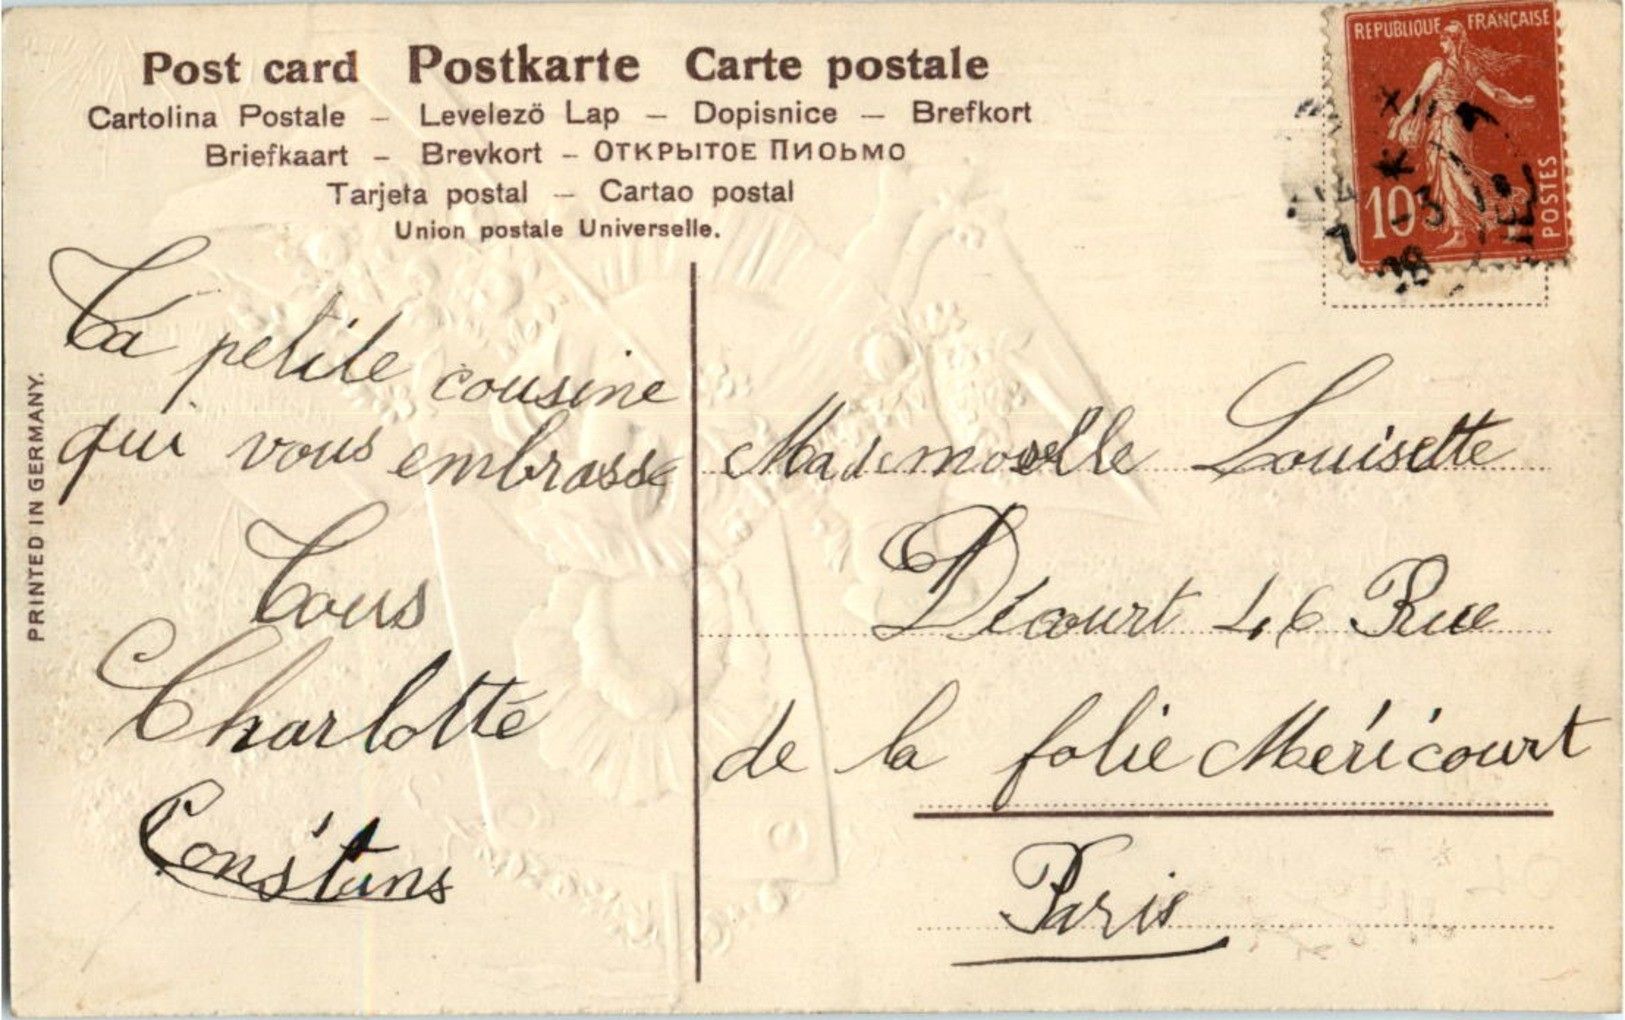 Post card Postkarte Carte postale
Cartolina Postale – Levelezö Lap – Dopisnice – Brefkort
Briefkaart – Brevkort – ОТКРЫТОЕ ПИОЬМО
Tarjeta postal – Cartao postal
Union postale Universelle.
REPUBLIQUE FRANÇAISE
10
POSTES
PRINTED IN GERMANY.
Ta petite cousine
qui vous embrasse
Tous
Charlotte
Constans
Mademoselle Louisette
Décourt 46 Rue
de la folie Méricourt
Paris